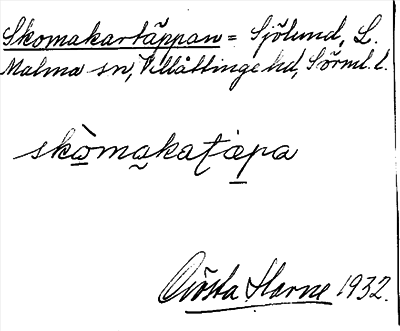 Skomakartäppan = Sjölund, L.
Malma sn, Villåttinge hd, Sörml. l.
skò̲ma̮kata̲pa
Gösta Harne 1932.